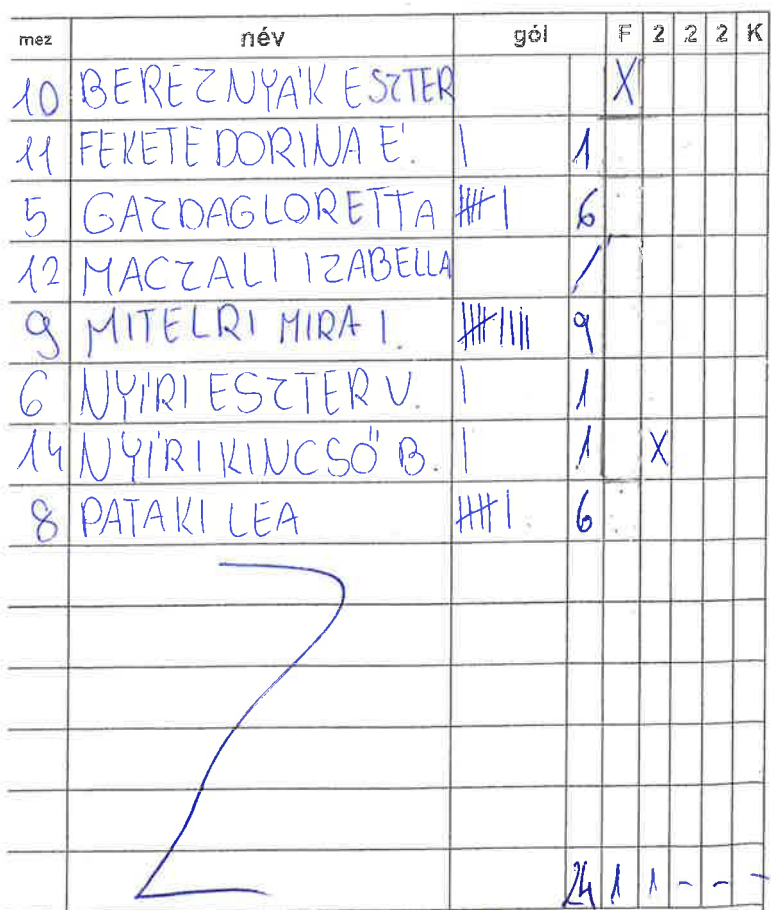 mez név gól F 2 2 2 K
10 BEREZNYÁK ESZTER X
11 FEKETE DORINA É. | 1
5 GAZDAG LORETTA |||| | 6
12 MACZALI IZABELLA /
9 MITELRI MIRA I. |||| |||| 9
6 NYÍRI ESZTER V. | 1
14 NYÍRI KINCSŐ B. | 1 X
8 PATAKI LEA |||| | 6
24 1 1 - - -